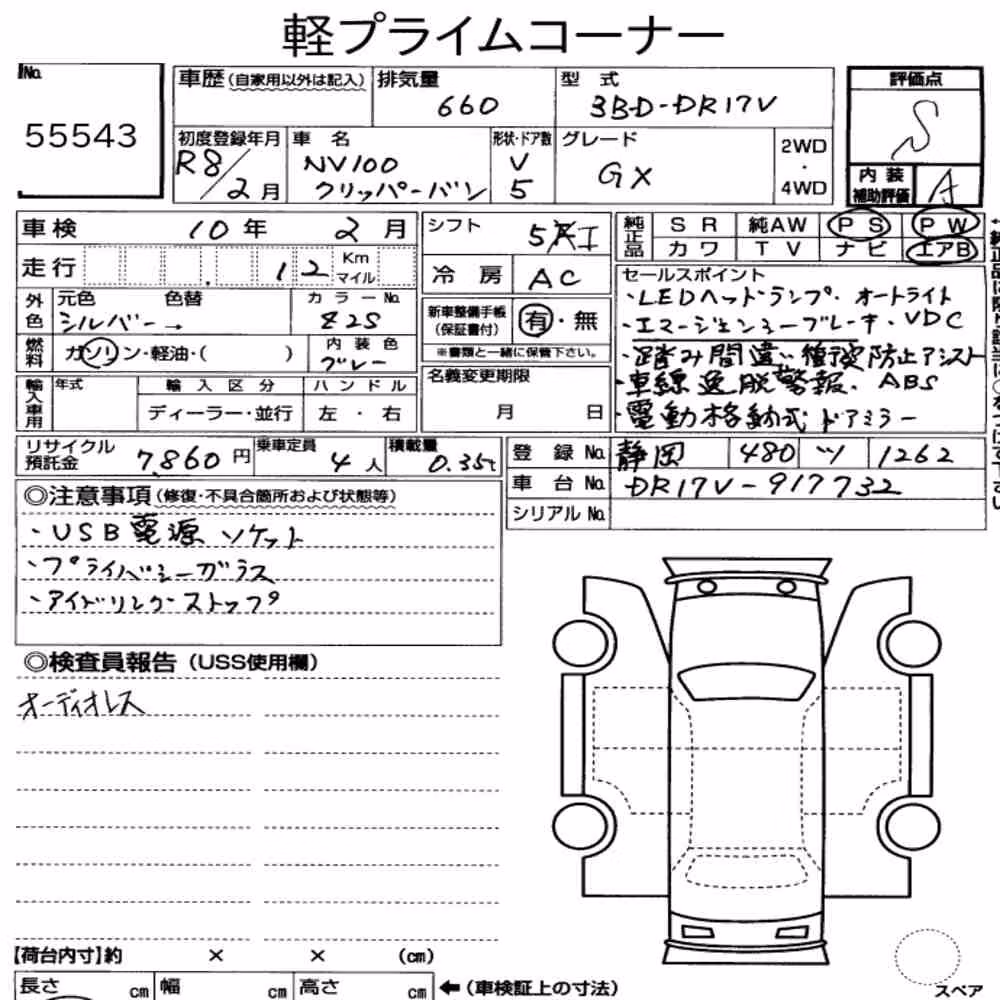 軽プライムコーナー
No.
55543
車歴(自家用以外は記入)
排気量
660
型 式
3BD-DR17V
評価点
S
初度登録年月
R8/2月
車 名
NV100
クリッパーバン
形状・ドア数
V
5
グレード
GX
2WD
・
4WD
内 装
補助評価
A
車検 10年 2月
走行 12 Km
マイル
シフト
冷 房 AC
純正品
S R 純AW P S P W
カワ T V ナビ エアB
外色
元色 色替
シルバー →
カラーNo.
Z2S
燃料
ガソリン・軽油・( )
内装色
グレー
新車整備手帳
(保証書付)
有・無
※書類と一緒に保管下さい。
セールスポイント
・LEDヘッドランプ・オートライト
・エマージェンシーブレーキ・VDC
・踏み間違い衝突防止アシスト
・車線逸脱警報・ABS
・電動格納式ドアミラー
輸入車用
年式
輸入区分
ハンドル
ディーラー・並行
左 ・ 右
名義変更期限
月 日
リサイクル
預託金
7,860円
乗車定員
4人
積載量
0.35t
登 録 No. 静岡 480 ツ 1262
車 台 No. DR17V-917732
シリアル No.
◎注意事項(修復・不具合箇所および状態等)
・USB電源ソケット
・プライバシーガラス
・アイドリングストップ
◎検査員報告(USS使用欄)
オーディオレス
【荷台内寸】約 × × (cm)
長さ cm 幅 cm 高さ cm
←(車検証上の寸法)
スペア